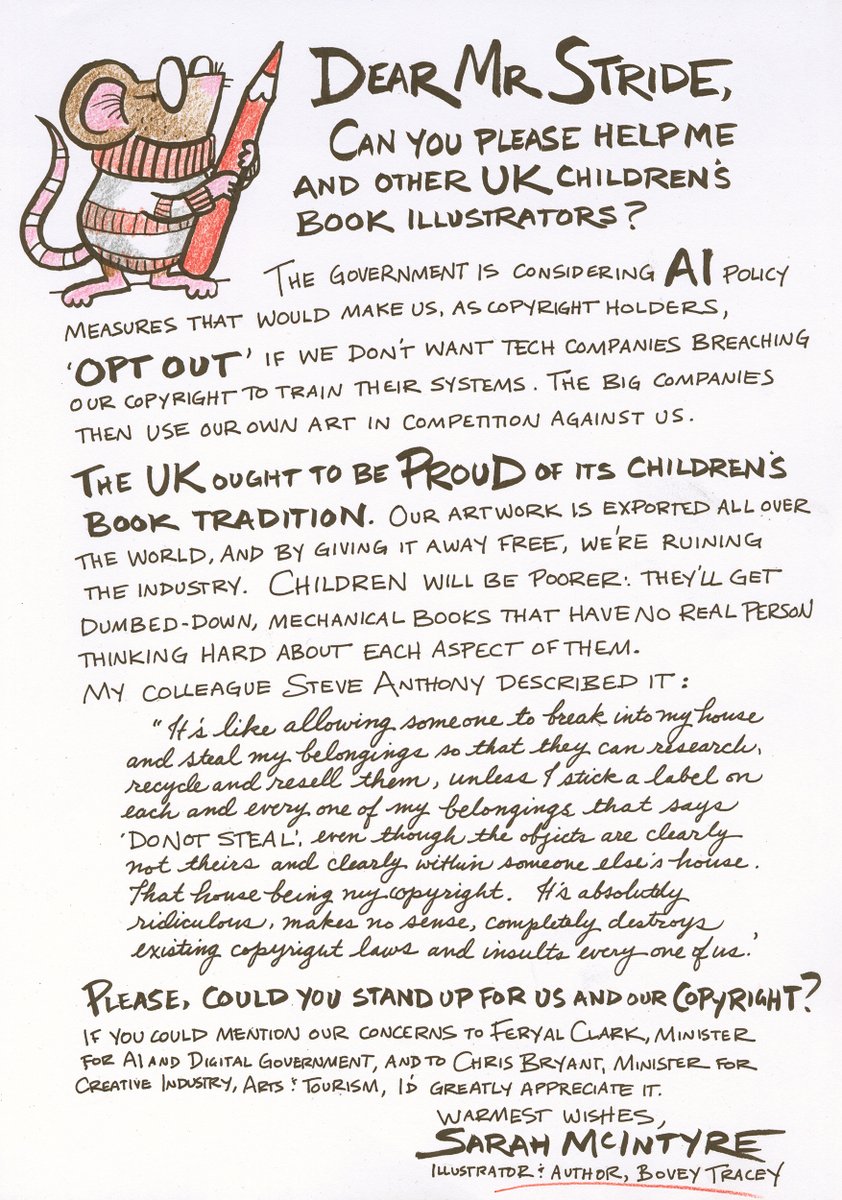 DEAR MR STRIDE,
CAN YOU PLEASE HELP ME
AND OTHER UK CHILDREN'S
BOOK ILLUSTRATORS?
THE GOVERNMENT IS CONSIDERING AI POLICY
MEASURES THAT WOULD MAKE US, AS COPYRIGHT HOLDERS,
'OPT OUT' IF WE DON'T WANT TECH COMPANIES BREACHING
OUR COPYRIGHT TO TRAIN THEIR SYSTEMS. THE BIG COMPANIES
THEN USE OUR OWN ART IN COMPETITION AGAINST US.
THE UK OUGHT TO BE PROUD OF ITS CHILDREN'S
BOOK TRADITION. OUR ARTWORK IS EXPORTED ALL OVER
THE WORLD, AND BY GIVING IT AWAY FREE, WE'RE RUINING
THE INDUSTRY. CHILDREN WILL BE POORER: THEY'LL GET
DUMBED-DOWN, MECHANICAL BOOKS THAT HAVE NO REAL PERSON
THINKING HARD ABOUT EACH ASPECT OF THEM.
MY COLLEAGUE STEVE ANTHONY DESCRIBED IT:
"It's like allowing someone to break into my house
and steal my belongings so that they can research,
recycle and resell them, unless I stick a label on
each and every one of my belongings that says
'DO NOT STEAL', even though the objects are clearly
not theirs and clearly within someone else's house.
That house being my copyright. It's absolutely
ridiculous, makes no sense, completely destroys
existing copyright laws and insults every one of us.'
PLEASE, COULD YOU STAND UP FOR US AND OUR COPYRIGHT?
IF YOU COULD MENTION OUR CONCERNS TO FERYAL CLARK, MINISTER
FOR AI AND DIGITAL GOVERNMENT, AND TO CHRIS BRYANT, MINISTER FOR
CREATIVE INDUSTRY, ARTS & TOURISM, I'D GREATLY APPRECIATE IT.
WARMEST WISHES,
SARAH MCINTYRE
ILLUSTRATOR & AUTHOR, BOVEY TRACEY